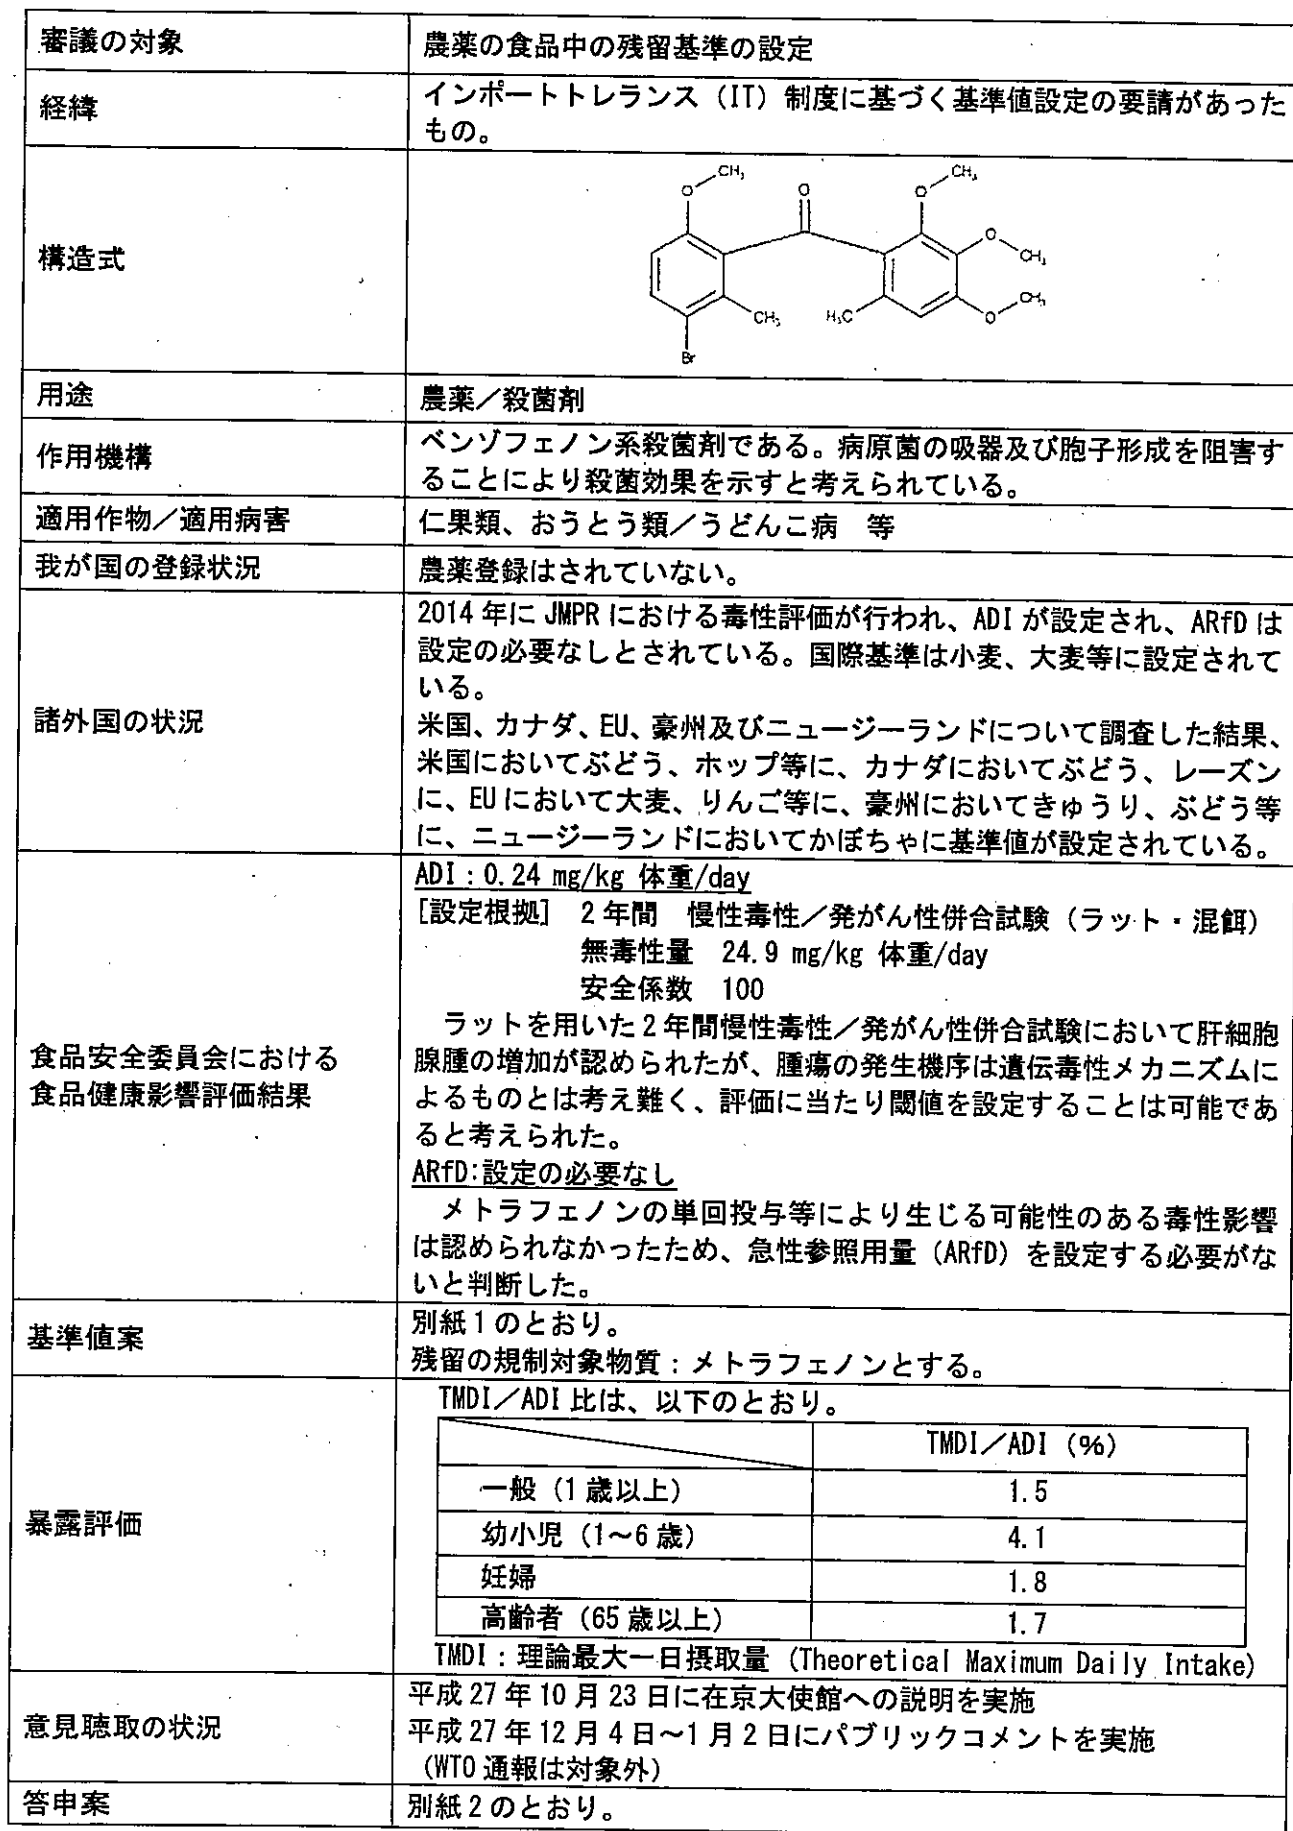 審議の対象
農薬の食品中の残留基準の設定
経緯
インポートトレランス（IT）制度に基づく基準値設定の要請があった
もの。
構造式
CH₃
O
O
O
CH₃
O
CH₃
O
CH₃
CH₃
H₃C
Br
用途
農薬／殺菌剤
作用機構
ベンゾフェノン系殺菌剤である。病原菌の吸器及び胞子形成を阻害す
ることにより殺菌効果を示すと考えられている。
適用作物／適用病害
仁果類、おうとう類／うどんこ病　等
我が国の登録状況
農薬登録はされていない。
諸外国の状況
2014年にJMPRにおける毒性評価が行われ、ADIが設定され、ARfDは
設定の必要なしとされている。国際基準は小麦、大麦等に設定されて
いる。
米国、カナダ、EU、豪州及びニュージーランドについて調査した結果、
米国においてぶどう、ホップ等に、カナダにおいてぶどう、レーズン
に、EUにおいて大麦、りんご等に、豪州においてきゅうり、ぶどう等
に、ニュージーランドにおいてかぼちゃに基準値が設定されている。
食品安全委員会における
食品健康影響評価結果
ADI：0.24 mg/kg 体重/day
［設定根拠］　2年間　慢性毒性／発がん性併合試験（ラット・混餌）
無毒性量　24.9 mg/kg 体重/day
安全係数　100
ラットを用いた2年間慢性毒性／発がん性併合試験において肝細胞
腺腫の増加が認められたが、腫瘍の発生機序は遺伝毒性メカニズムに
よるものとは考え難く、評価に当たり閾値を設定することは可能であ
ると考えられた。
ARfD:設定の必要なし
メトラフェノンの単回投与等により生じる可能性のある毒性影響
は認められなかったため、急性参照用量（ARfD）を設定する必要がな
いと判断した。
基準値案
別紙1のとおり。
残留の規制対象物質：メトラフェノンとする。
暴露評価
TMDI／ADI比は、以下のとおり。
TMDI／ADI（%）
一般（1歳以上）
1.5
幼小児（1～6歳）
4.1
妊婦
1.8
高齢者（65歳以上）
1.7
TMDI：理論最大一日摂取量（Theoretical Maximum Daily Intake）
意見聴取の状況
平成27年10月23日に在京大使館への説明を実施
平成27年12月4日～1月2日にパブリックコメントを実施
（WTO通報は対象外）
答申案
別紙2のとおり。